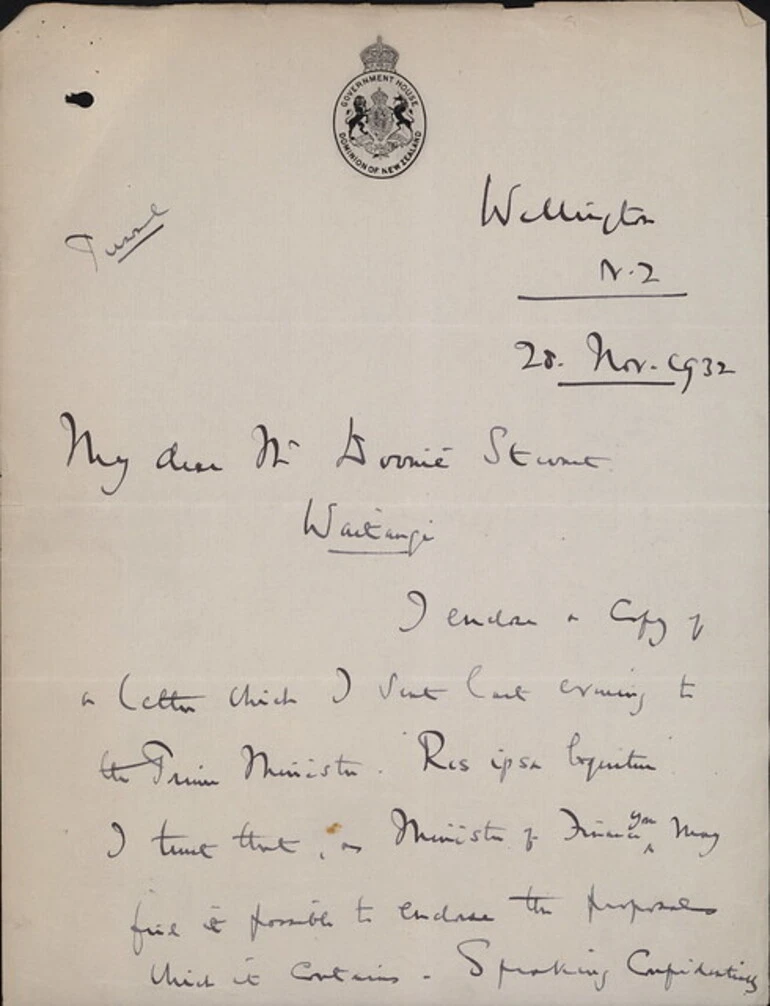 GOVERNMENT HOUSE
DOMINION OF NEW ZEALAND
Wellington
N.Z
28. Nov. 1932
My dear Mr Downie Stewart
Waitangi
I enclose a copy of
a letter which I sent last evening to
the Prime Minister. Res ipsa loquitur
I trust that, as Minister of Finance you may
find it possible to endorse the proposals
which it contains - Speaking Confidentially